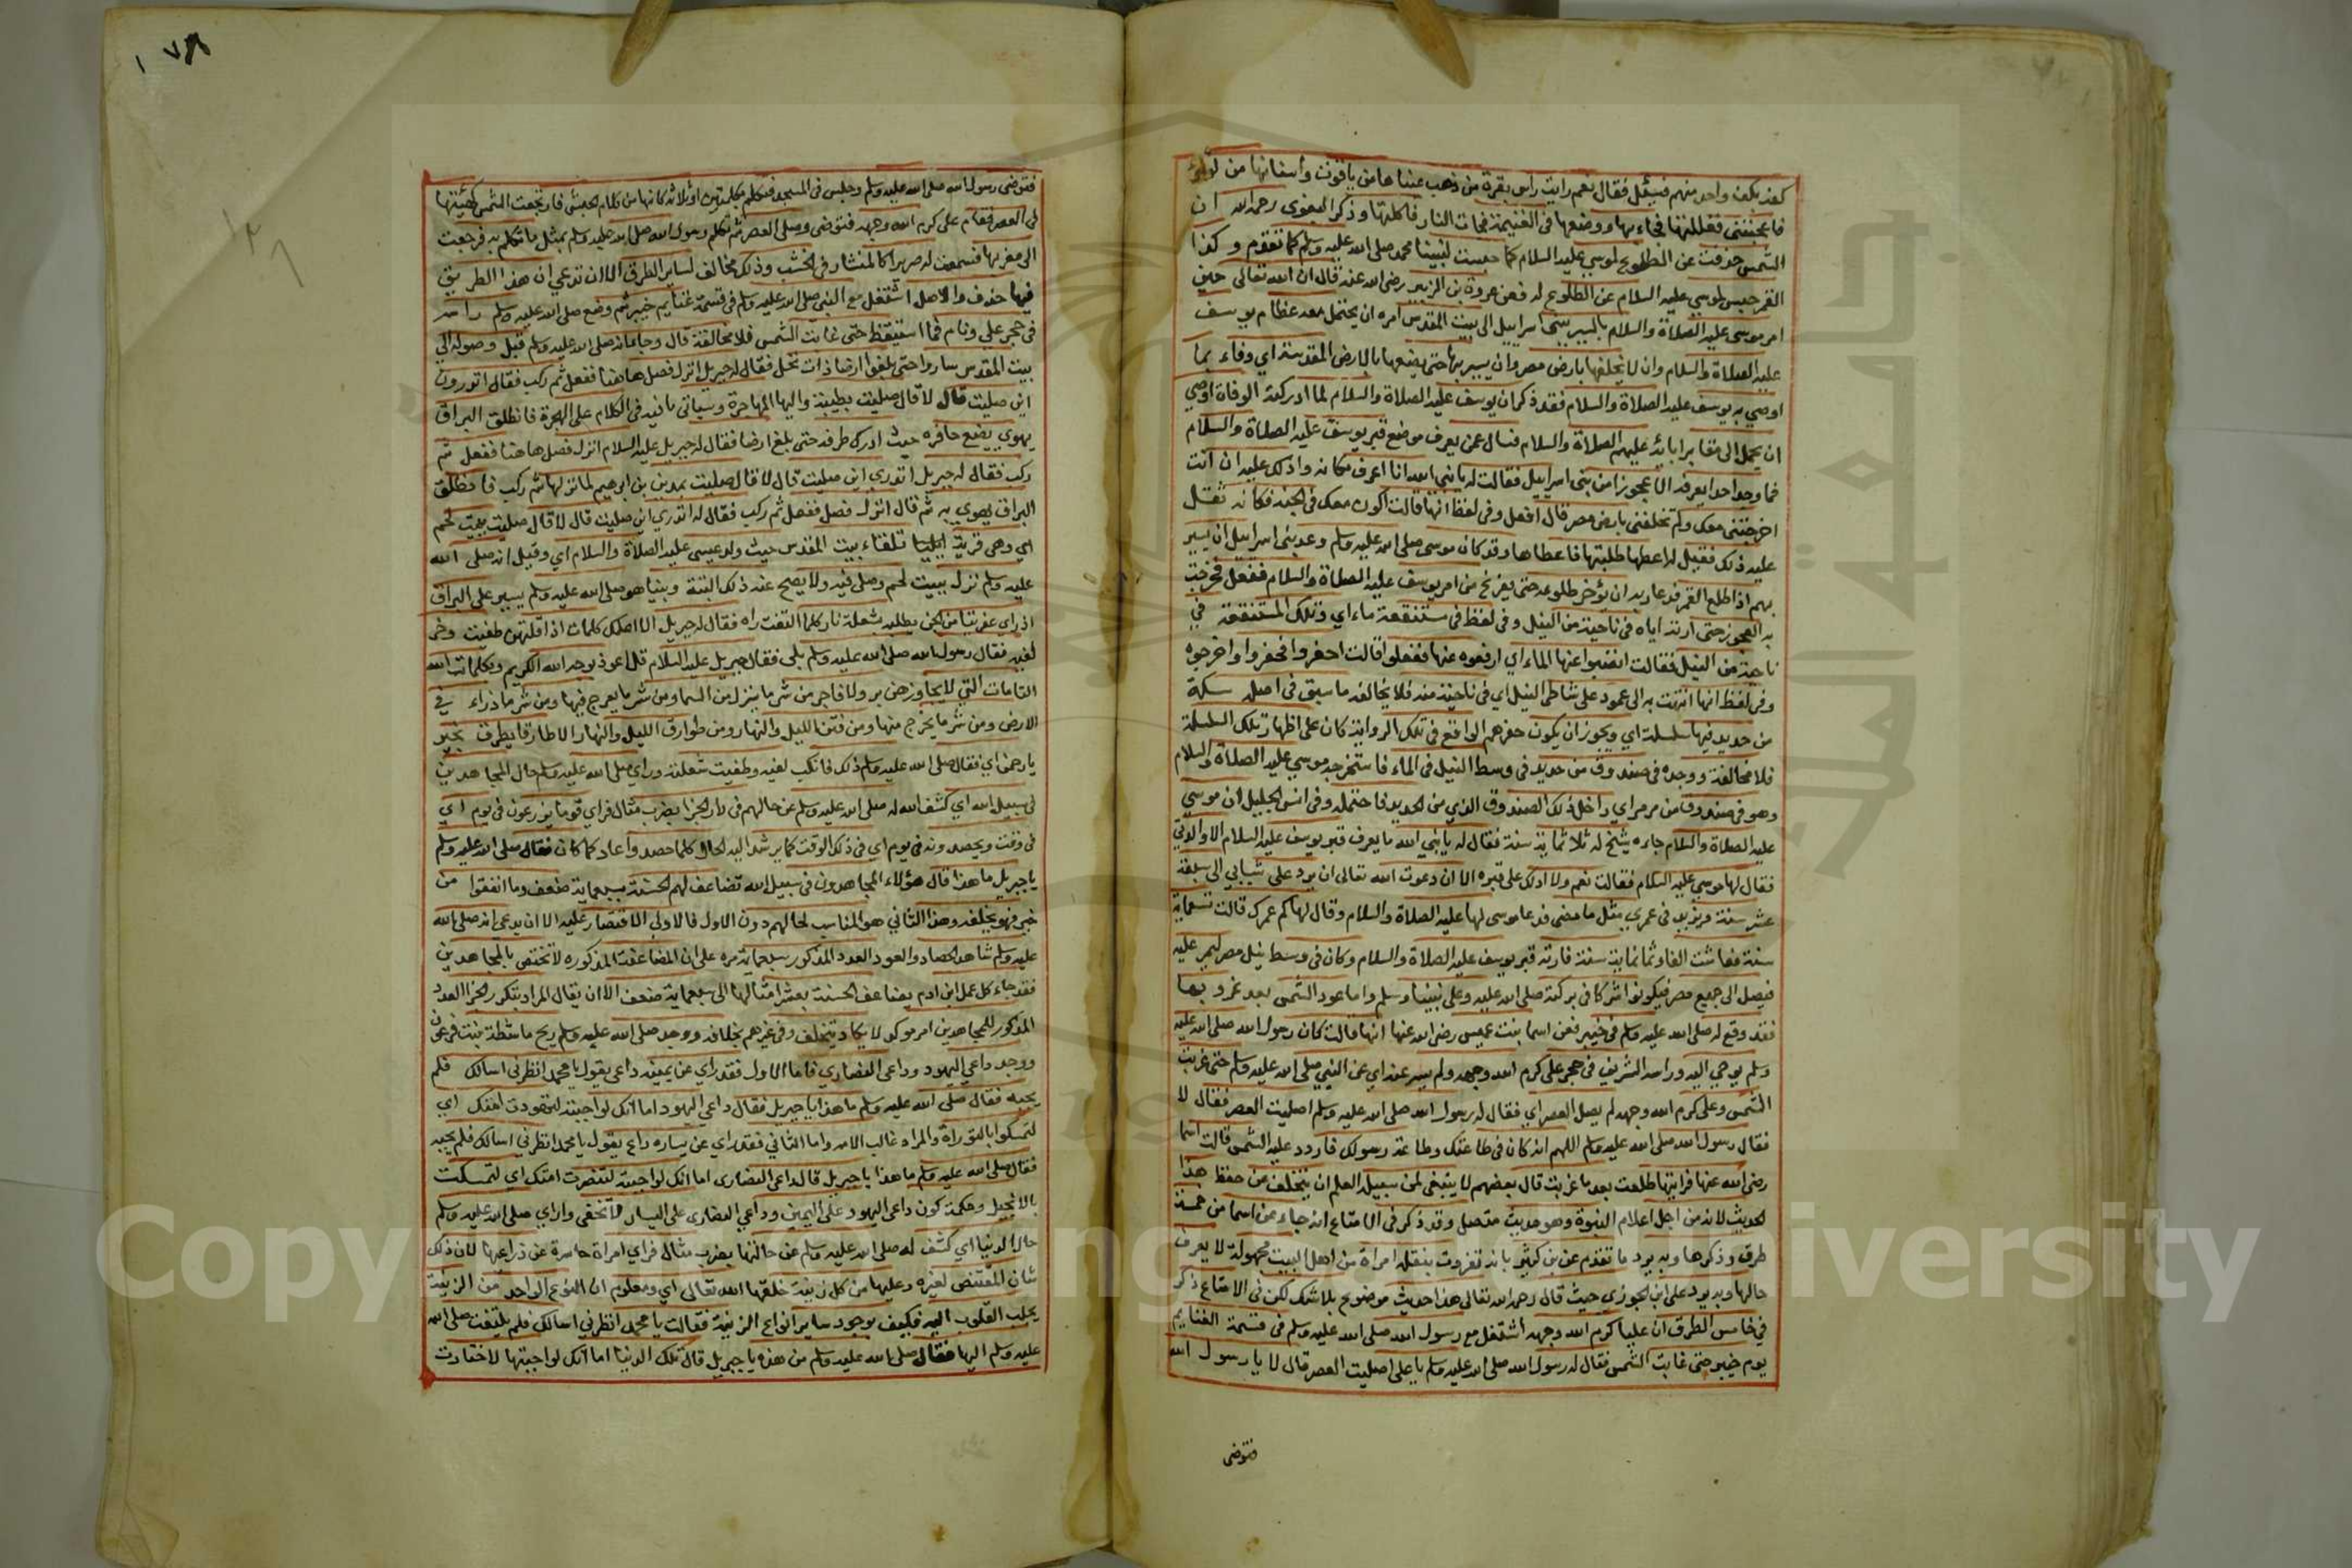 كفه بكف واحد منهم فسئل فقال نعم رايت راس بقرة من ذهب عيناها من ياقوت واسنانها من لؤلؤ
فاعجبتني فغللتها فجاء بها ووضعها في الغنيمة فجات النار فاكلتها وذكر البغوي رحمه الله ان
الشمس حبست عن الطلوع لموسي عليه السلام كما حبست لنبينا محمد صلى الله عليه وسلم كما تقدم وكذا
القمر حبس لموسي عليه السلام عن الطلوع له فعن عروة بن الزبير رضى الله عنه قال ان الله تعالى حين
امر موسى عليه الصلاة والسلام بالسير ببنى اسرابيل الى بيت المقدس امره ان يحتمل معه عظام يوسف
عليه الصلاة والسلام وان لا يخلفها بارض مصر وان يسير بها حتى يضعها بالارض المقدسة اي وفاء بما
اوصي به يوسف عليه الصلاة والسلام فقد ذكر ان يوسف عليه الصلاة والسلام لما ادركته الوفاة اوصي
ان يحمل الى مقابر ابائه عليهم الصلاة والسلام فسال عمن يعرف موضع قبر يوسف عليه الصلاة والسلام
فما وجد احدا يعرفه الا عجوزا من بنى اسرابيل فقالت له يا نبي الله انا اعرف مكانه وادلك عليه ان انت
اخرجتنى معك ولم تخلفنى بارض مصر قال افعل وفى لفظ انها قالت اكون معك فى الجنة فكانه ثقل
عليه ذلك فقيل له اعطها طلبتها فاعطاها وقد كان موسى صلى الله عليه وسلم وعد بنى اسرابيل ان يسير
بهم اذا طلع القمر فدعا ربه ان يؤخر طلوعه حتى يفرغ من امر يوسف عليه الصلاة والسلام ففعل فخرجت
به العجوز حتى ارته اياه فى ناحية من النيل وفى لفظ فى مستنقعة ماء اي وتلك المستنقعة في
ناحية من النيل فقالت انضبوا عنها الماء اي ارفعوه عنها ففعلوا قالت احفروا فحفروا واخرجوه
وفى لفظ انها انتهت به الى عمود على شاطى النيل اي فى ناحية منه فلا يخالفه ما سبق فى اصله سكة
من حديد فيها سلسلة اي ويجوز ان يكون حفرهم الواقع فى تلك الرواية كان على اظهار تلك السلسلة
فلا مخالفة ووجده فى صندوق من حديد فى وسط النيل فى الماء فاستخرجه موسي عليه الصلاة والسلام
وهو فى صندوق من مرمر اي داخل ذلك الصندوق الذي من الحديد فاحتمله وفى انس الجليل ان موسي
عليه الصلاة والسلام جاءه شيخ له ثلاثمائة سنة فقال له يا نبي الله ما يعرف قبر يوسف عليه السلام الا والدتي
فقال لها موسي عليه السلام فقالت نعم ولا ادلك على قبره الا ان دعوت الله تعالى ان يرد على شبابي الى سبعة
عشر سنة ويزيد فى عمري مثل ما مضى فدعا موسى لها عليه الصلاة والسلام وقال لها كم عمرك قالت تسعماية
سنة فعاشت الفا وثمانماية سنة فارته قبر يوسف عليه الصلاة والسلام وكان فى وسط نيل مصر ليمر عليه
فيصل الى جميع مصر فيكونوا شركا فى بركته صلى الله عليه وعلى نبينا وسلم واما عود الشمس بعد غروبها
فقد وقع له صلى الله عليه وسلم فى خيبر فعن اسما بنت عميس رضى الله عنها انها قالت كان رسول الله صلى الله عليه
وسلم يوحي اليه وراسه الشريف فى حجر على كرم الله وجهه ولم يسر عنه اي عن النبي صلى الله عليه وسلم حتى غربت
الشمس وعلى كرم الله وجهه لم يصل العصر اي فقال له رسول الله صلى الله عليه وسلم اصليت العصر فقال لا
فقال رسول الله صلى الله عليه وسلم اللهم انه كان فى طاعتك وطاعة رسولك فاردد عليه الشمس قالت اسما
رضى الله عنها فرايتها طلعت بعد ما غربت قال بعضهم لا ينبغى لمن سبيله العلم ان يتخلف عن حفظ هذا
الحديث لانه من اجل اعلام النبوة وهو حديث متصل وقد ذكر فى الامتاع انه جاء عن اسما من خمسة
طرق وذكرها وبه يرد ما تقدم عن بن كثير بانه تفردت بنقله امراة من اهل البيت مجهولة لا يعرف
حالها وبه يرد على ابن الجوزي حيث قال رحمه الله تعالى هذا حديث موضوع بلا شك لكن فى الامتاع ذكر
في خامس الطرق ان عليا كرم الله وجهه اشتغل مع رسول الله صلى الله عليه وسلم فى قسمة الغنايم
يوم خيبر حتى غابت الشمس فقال له رسول الله صلى الله عليه وسلم يا على اصليت العصر قال لا يا رسول الله
فتوضى
١٧٨
١٢٦
فتوضى رسول الله صلى الله عليه وسلم وجلس فى المسجد فتكلم بكلمتين او ثلاثة كانها من كلام الحبش فارتجعت الشمس كهيئتها
فى العصر فقام على كرم الله وجهه فتوضى وصلى العصر ثم تكلم رسول الله صلى الله عليه وسلم بمثل ما تكلم به فرجعت
الى مغربها فسمعت لها صريرا كالمنشار فى الخشب وذلك مخالف لساير الطرق الا ان ندعي ان هذا الطريق
فيها حذف والاصل اشتغل مع النبي صلى الله عليه وسلم فى قسمة غنايم خيبر ثم وضع صلى الله عليه وسلم راسه
فى حجر على ونام فما استيقظ حتى غابت الشمس فلا مخالفة قال وجاء انه صلى الله عليه وسلم قبل وصوله الى
بيت المقدس ساروا حتى بلغوا ارضا ذات نخل فقال له جبريل انزل فصل هاهنا ففعل ثم ركب فقال اتدرون
اين صليت قال لا قال صليت بطيبة واليها المهاجرة وسياتى ما فيه فى الكلام على الهجرة فانطلق البراق
يهوي يضع حافره حيث ادرك طرفه حتى بلغ ارضا فقال له جبريل عليه السلام انزل فصل هاهنا ففعل ثم
ركب فقال له جبريل اتدري اين صليت قال لا قال صليت بمدين بن ابرهيم لما نزلها ثم ركب فانطلق
البراق يهوي به ثم قال انزل فصل ففعل ثم ركب فقال له اتدري اين صليت قال لا قال صليت ببيت لحم
اي وهى قرية ايليا تلقاء بيت المقدس حيث ولد عيسى عليه الصلاة والسلام اي وقيل انه صلى الله
عليه وسلم نزل ببيت لحم وصلى فيه ولا يصح عنه ذلك البتة وبينا هو صلى الله عليه وسلم يسير على البراق
اذ راي عفريتا من الجن يطلبه بشعلة نار كلما التفت راه فقال له جبريل الا اعلمك كلمات اذا قلتهن طفيت وخر
لفيه فقال رسول الله صلى الله عليه وسلم بلى فقال جبريل عليه السلام قل اعوذ بوجه الله الكريم وبكلمات الله
التامات التي لا يجاوزهن بر ولا فاجر من شر ما ينزل من السما ومن شر ما يعرج فيها ومن شر ما ذراء في
الارض ومن شر ما يخرج منها ومن فتن الليل والنهار ومن طوارق الليل والنهار الا طارقا يطرق بخير
يا رحمن اي فقال صلى الله عليه وسلم ذلك فانكب لفيه وطفيت شعلته وراي صلى الله عليه وسلم حال المجاهدين
فى سبيل الله اي كشف الله له صلى الله عليه وسلم عن حالهم فى دار الجزا بضرب مثال فراي قوما يزرعون فى يوم اي
فى وقت ويحصدونه فى يوم اي فى ذلك الوقت كما يرشد اليه الحال كلما حصد واعاد كما كان فقال صلى الله عليه وسلم
يا جبريل ما هذا قال هؤلاء المجاهدون فى سبيل الله تضاعف لهم الحسنة بسبعماية ضعف وما انفقوا من
خير فهو يخلفه وهذا الثاني هو المناسب لحالهم دون الاول فالاولى الاقتصار عليه الا ان يدعى انه صلى الله
عليه وسلم شاهد الحصاد والعود العدد المذكور سبعماية مره على ان المضاعفة المذكوره لا تختص بالمجاهدين
فقد جاء كل عمل ابن ادم يضاعف الحسنة بعشر امثالها الى سبعماية ضعف الا ان يقال المراد بتكرر الجزا العدد
المذكور للمجاهدين امر موكد لا يكاد يتخلف وفى غيرهم بخلافه ووجد صلى الله عليه وسلم ريح ماشطة بنت فرعون
ووجد داعي اليهود وداعى النصاري فاما الاول فقد راي عن يمينه داعى يقول يا محمد انظرنى اسالك فلم
يجبه فقال صلى الله عليه وسلم ما هذا يا جبريل فقال داعي اليهود اما انك لو اجبته لتهودت امتك اي
لتمسكوا بالتوراة والمراد غالب الامه واما الثانى فقد راي عن يساره داع يقول يا محمد انظرنى اسالك فلم يجبه
فقال صلى الله عليه وسلم ما هذا يا جبريل قال داعى النصارى اما انك لو اجبته لتنصرت امتك اي لتمسكت
بالانجيل وحكمة كون داعى اليهود على اليمين وداعي النصارى على اليسار لا تخفى وراي صلى الله عليه وسلم
حال الدنيا اي كشف له صلى الله عليه وسلم عن حالتها بضرب مثال فراي امراة حاسرة عن ذراعيها لان ذلك
شان المقتنص لغيره وعليها من كل زينة خلقها الله تعالى اي ومعلوم ان النوع الواحد من الزينة
يجلب القلوب اليه فكيف بوجود ساير انواع الزينة فقالت يا محمد انظرني اسالك فلم يلتفت صلى الله
عليه وسلم اليها فقال صلى الله عليه وسلم من هذه يا جبريل قال تلك الدنيا اما انك لو اجبتها لاختارت